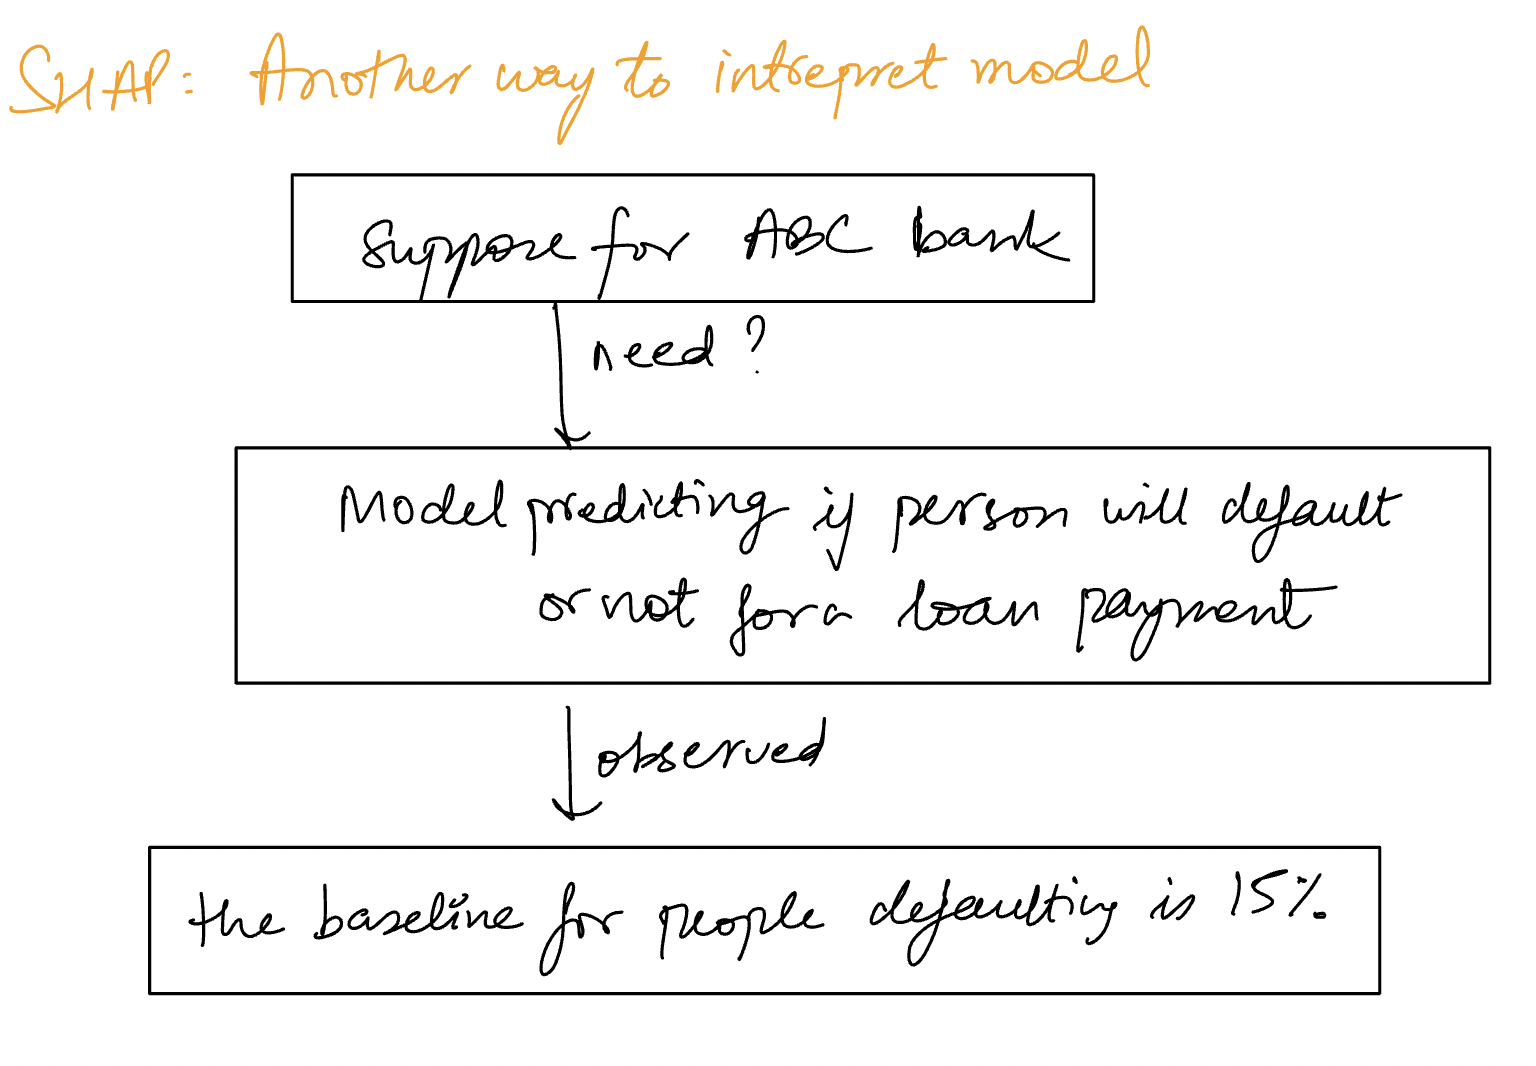 SHAP: Another way to intrepret model
Suppose for ABC bank
need?
Model predicting if person will default
or not for a loan payment
observed
the baseline for people defaulting is 15%.